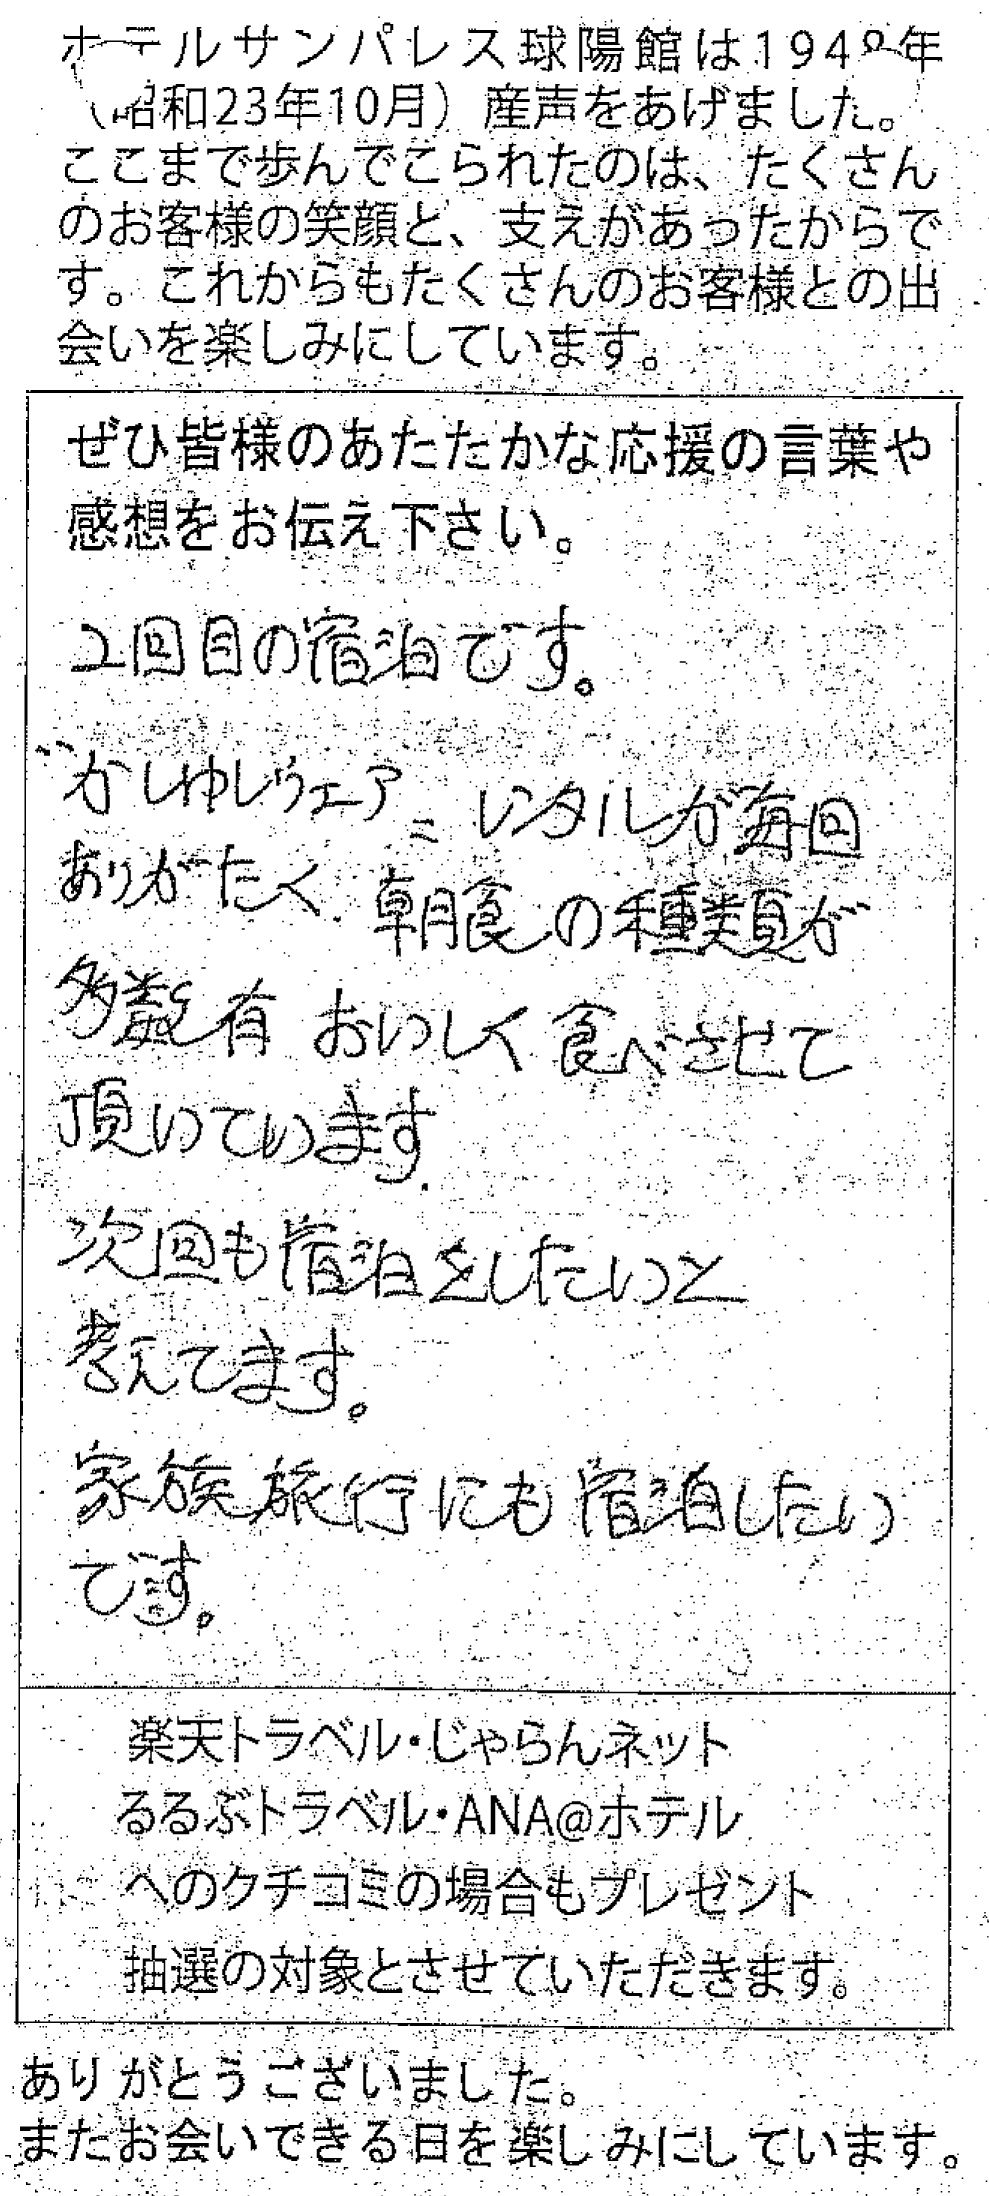 ホテルサンパレス球陽館は1948年
（昭和23年10月）産声をあげました。
ここまで歩んでこられたのは、たくさん
のお客様の笑顔と、支えがあったからで
す。これからもたくさんのお客様との出
会いを楽しみにしています。
ぜひ皆様のあたたかな応援の言葉や
感想をお伝え下さい。
2回目の宿泊です。
かしゆしウェア レンタルが毎回
ありがたく 朝食の種類が
多数有 おいしく食べさせて
頂いています
次回も宿泊をしたいと
考えてます。
家族旅行にも宿泊したい
です。
楽天トラベル・じゃらんネット
るるぶトラベル・ANA@ホテル
へのクチコミの場合もプレゼント
抽選の対象とさせていただきます。
ありがとうございました。
またお会いできる日を楽しみにしています。